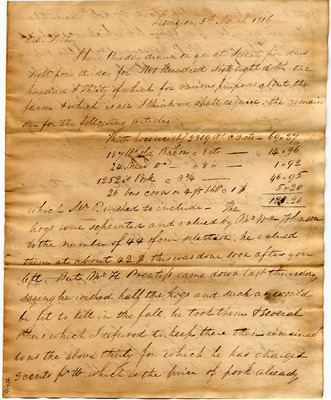 Lexington, 5th March 1816
Dear Sir
I have this day drawn on you at Seventy five days
sight from this day for Two Hundred Sixty eight dolls one
hundred & thirty of which for various purposes about the
farm & which is all I think we shall require, the remain
der for the following articles.
Thirty hogs weighg 2309 lbs c 3 cts — 69.27
187 lbs old Bacon c 8 cts — 14.96
24 new do c 8 " — 1.92
1252 lbs Pork c 3¾ — 46.95
26 bus corn 5.20
which Mr P wished to include — The
hogs were seperated and valued by Mr Wm
to the number of 44 of our selection, he valued
them at about 42.$ this was done soon after you
left. But Mr H Prentiss came down last thursday
saying he wished half the hogs and such as would
be fit to kill in the fall, he took them & several
others which I refused to keep there then remained
to us the above thirty for which he has charged
3 cents pr lb which is the price of pork already